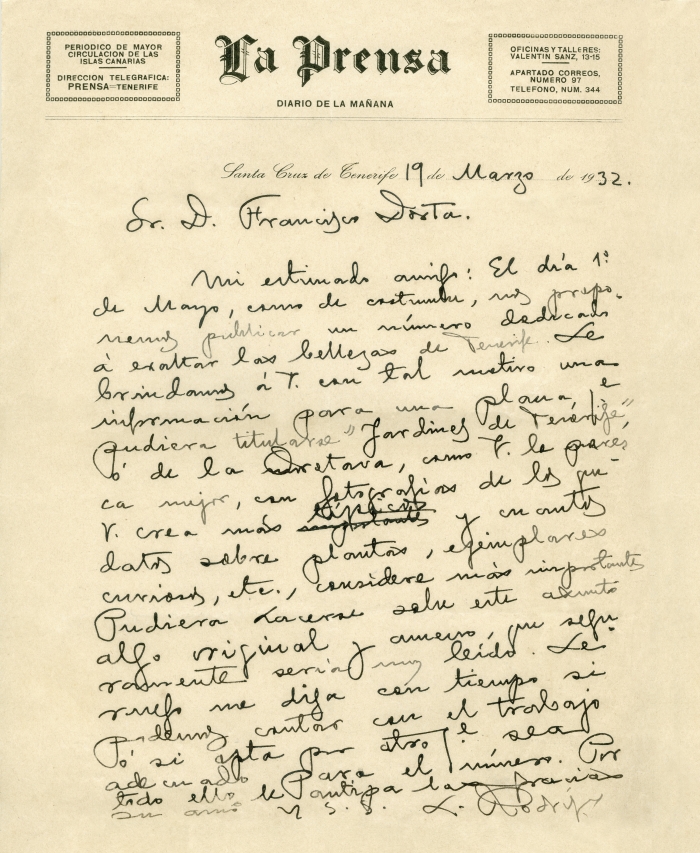 PERIODICO DE MAYOR
CIRCULACION DE LAS
ISLAS CANARIAS
DIRECCION TELEGRAFICA:
PRENSA=TENERIFE
La Prensa
DIARIO DE LA MAÑANA
OFICINAS Y TALLERES:
VALENTIN SANZ, 13-15
APARTADO CORREOS,
NUMERO 97
TELEFONO, NUM. 344
Santa Cruz de Tenerife 19 de Marzo de 1932.
Sr. D. Francisco Dorta.
Mi estimado amigo: El día 1º
de Mayo, como de costumbre, nos propo-
nemos publicar un número dedicado
á exaltar las bellezas de Tenerife. Le
brindamos á V. con tal motivo una
información para una plana, q
pudiera titularse "Jardines de Tenerife",
ó de la Orotava, como V. le pares
ca mejor, con fotografías de los que
V. crea más típicos y cuantos
datos sobre plantas, ejemplares
curiosos, etc., considere más importantes
Pudiera hacerse sobre este asunto
algo original y ameno, que segu
ramente sería muy leído. Le
ruego me diga con tiempo si
podemos contar con el trabajo
ó si opta por otro q sea
adecuado para el número. Por
todo ello le anticipa las gracias
su amº
L. Rodríg